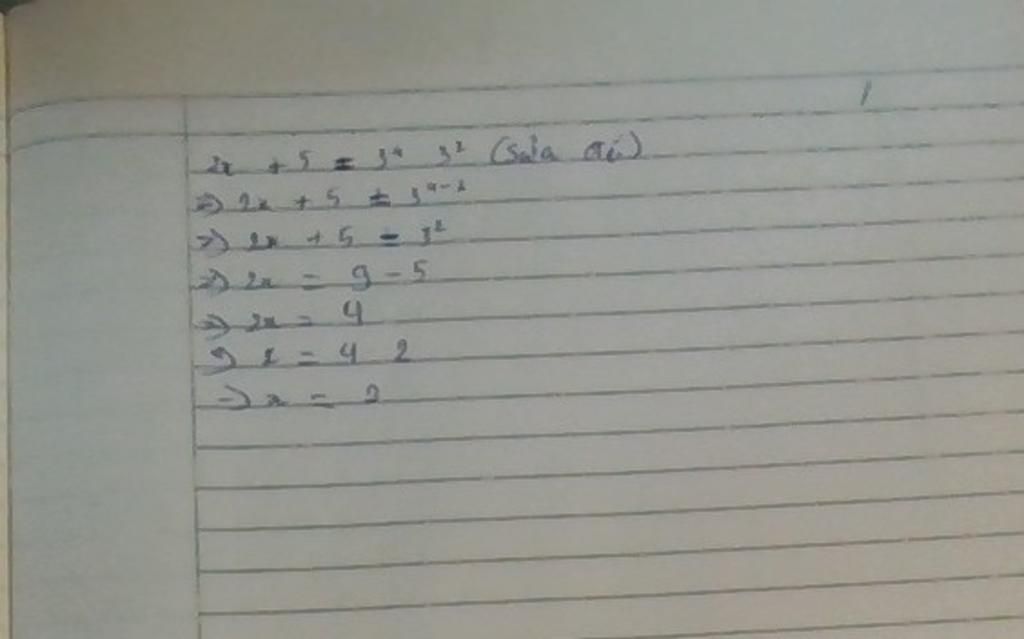 2x + 5 = 3⁴ 3² (Sửa đề)
=> 2x + 5 = 3⁴⁻²
=> 2x + 5 = 3²
=> 2x = 9 - 5
=> 2x = 4
=> x = 4 2
=> x = 2